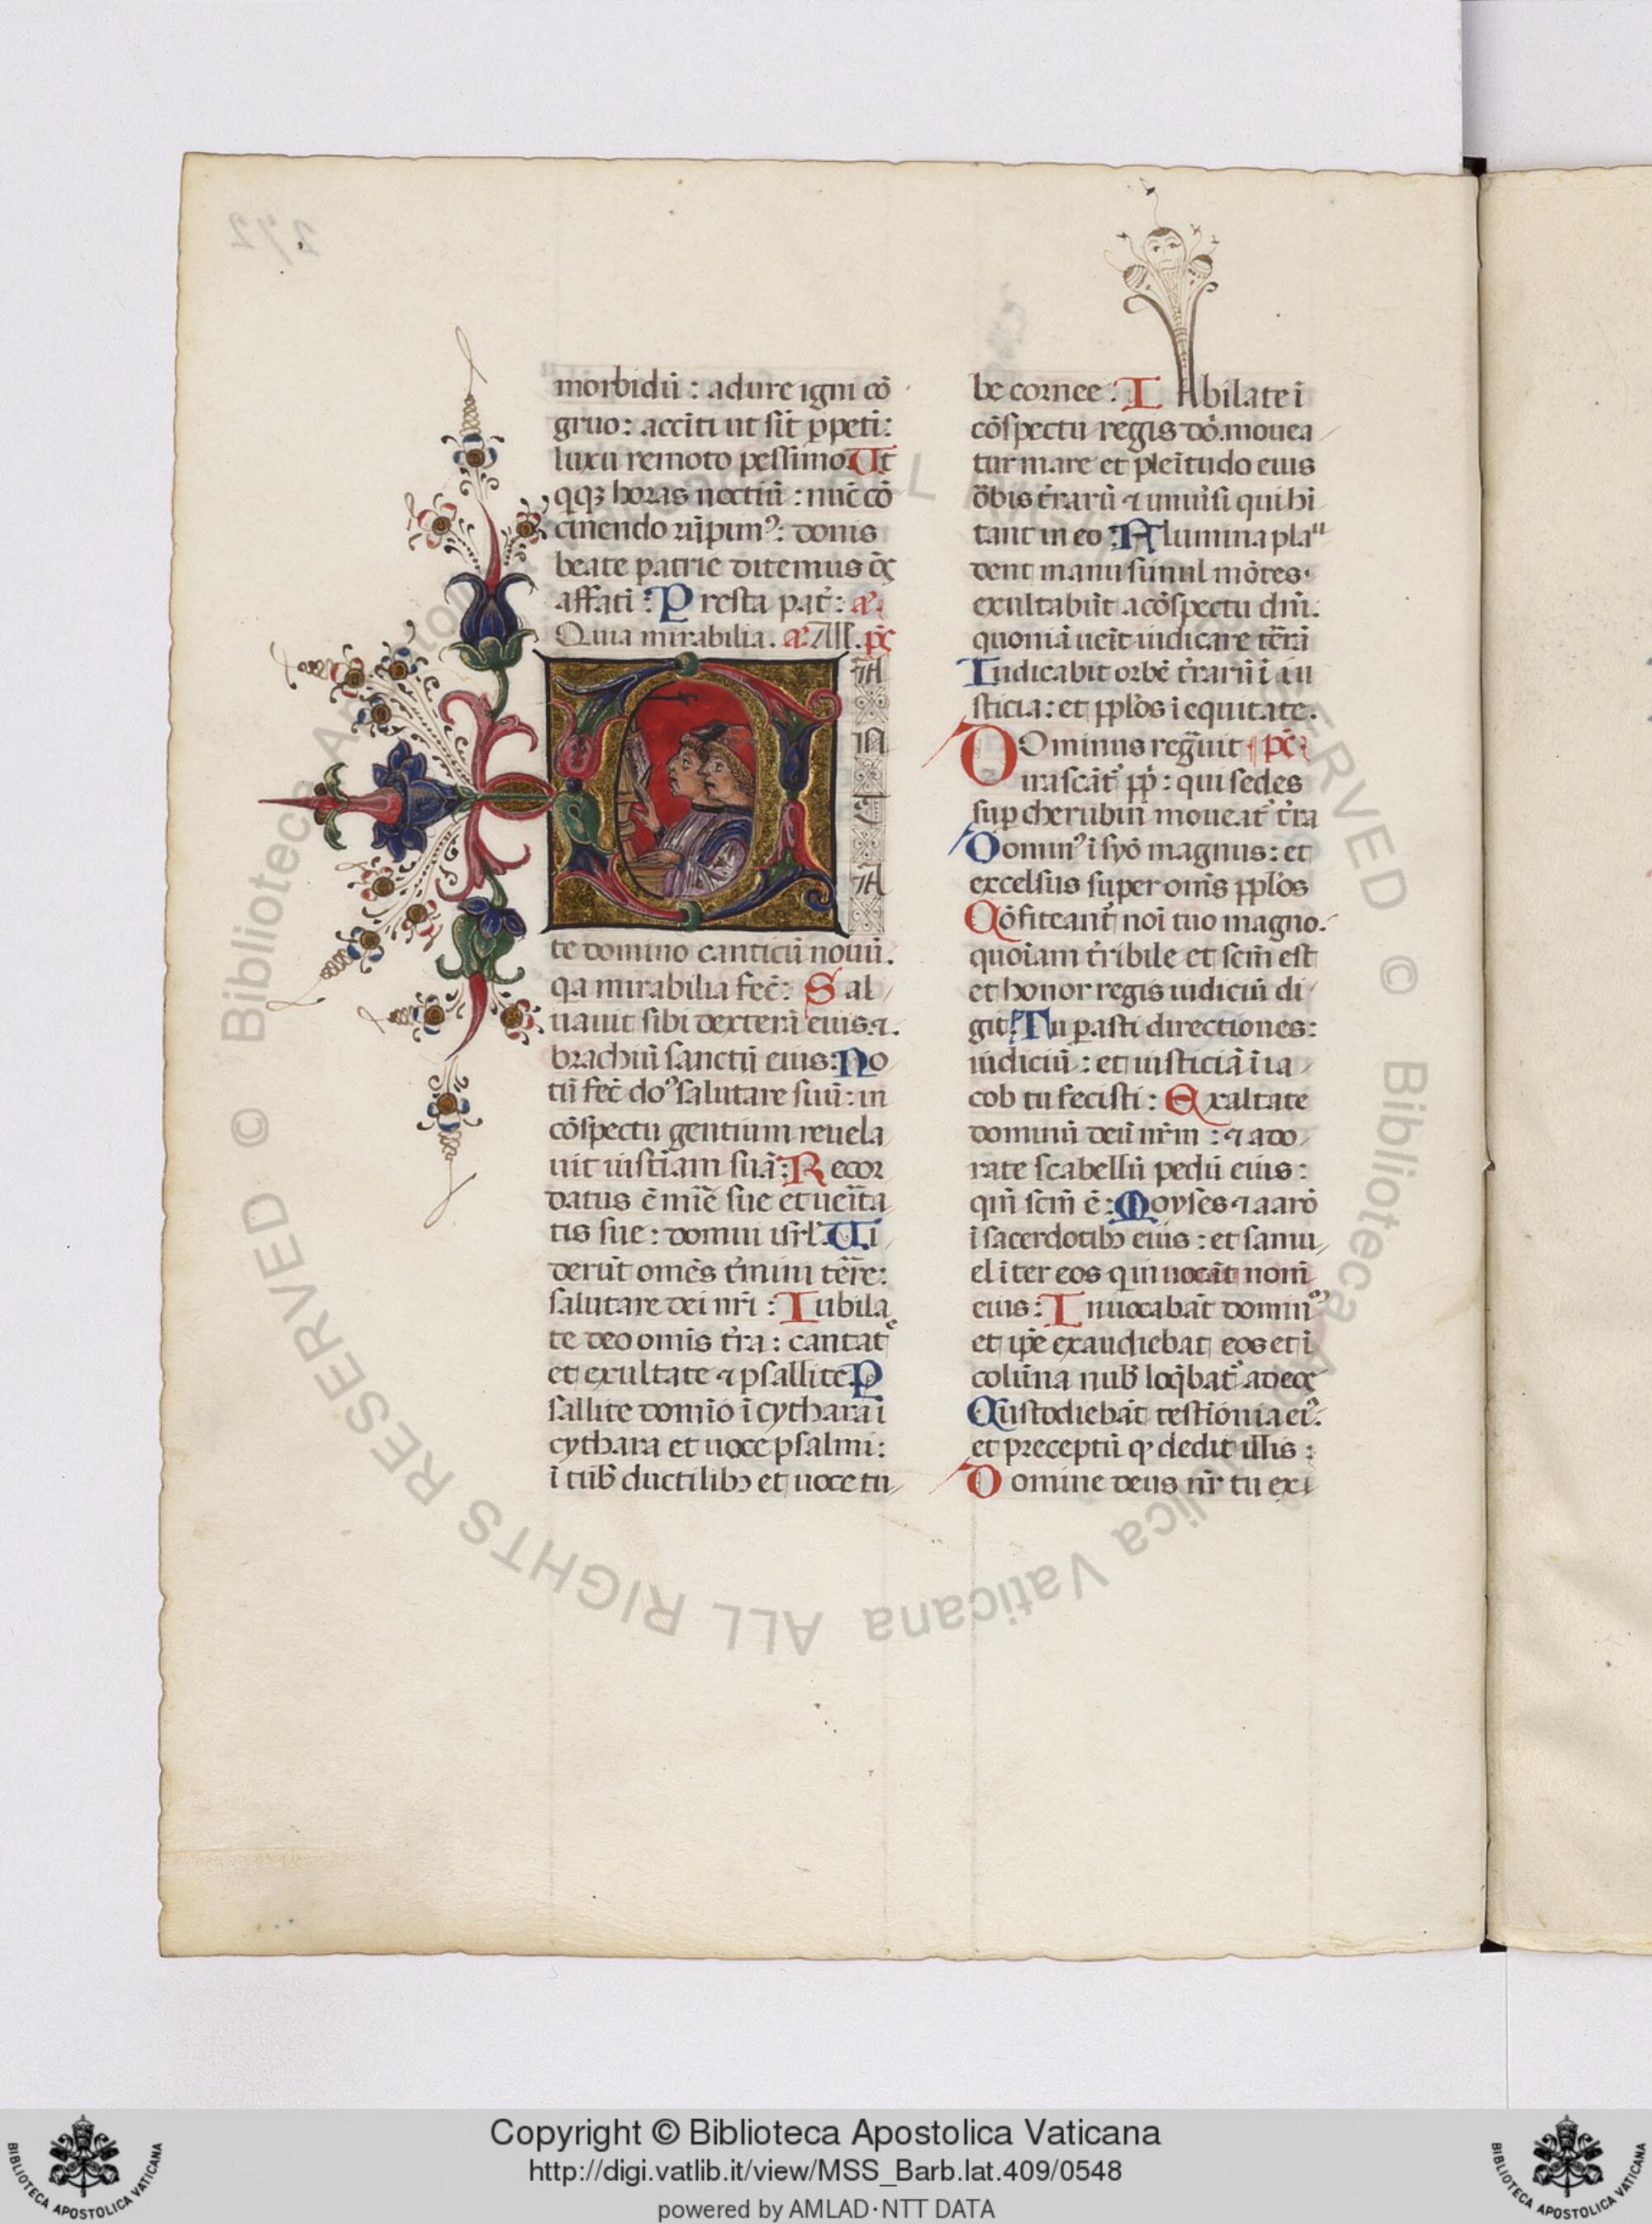 272
morbidū : adure igni cō
gruo: acciti ut sīt ppeti:
luxu remoto pessimo Ut
qqȝ horas noctiū : nūc cō
cinendo rūpimꝰ: donis
beate patrie ditemus oēs
affatī : Presta pat̄ : æ.
Quia mirabilia. æ Aƚƚ. pš
CANTA
te domino canticū nouū.
qa mirabilia fec̄: Sal
uauit sibi dexterā eius ⁊.
brachiū sanctū eius: No
tū fec̄ doꝰ salutare suū: in
cōspectu gentium reuela
uit iustīam suā: Recor
datus ē mīe sue et ueīta
tis sue : domui isrƚ. Ui
derūt omēs t̄mini tēre:
salutare dei nr̄i : Iubila
te deo omīs t̄ra : cantate
et exultate ⁊ psallite P
sallite domīo ī cythara ī
cythara et uoce psalmi:
ī tub̄ ductilibꝫ et uoce tu
be cornee : Iubilate ī
cōspectu regis dō. mouea
tur mare et pleītudo eius
ōbis t̄rarū ⁊ uniūsi qui hī
tant in eo : Flumina plau
dent manu simul mōtes
exultabūt a cōspectu dn̄i.
quoniā ueīt iudicare tērā
Iudicabit orbē t̄rarū ī iu
sticia : et ppƚos ī equitate.
Dominus regūuit pš
irascāt̄ pp̄ : qui sedes
sup cherubin moueat̄ t̄ra
Dominꝰ ī syō magnus : et
excelsus super omīs ppƚos
Cōfiteant̄ noī tuo magno.
quoīam t̄ribile et scm̄ est
et honor regis iudiciū di
git: Tu parasti directiones:
iudiciū : et iusticiā ī ia
cob tu fecisti : Exaltate
dominū deū nr̄m : ⁊ ado
rate scabellū pedū eius :
qm̄ scm̄ ē : Moyses ⁊ aarō
ī sacerdotibꝫ eius : et samu
el īter eos qui uocāt nom̄
eius : Inuocabāt dominū
et ip̄e exaudiebat eos et ī
colūna nub̄ loq̄bat̄ ad eos
Custodiebāt testīonia eiꝰ.
et preceptū qꝰ dedit illis :
Domine deus nr̄ tu exi
© Biblioteca Apostolica Vaticana ALL RIGHTS RESERVED © Biblioteca Apostolica Vaticana ALL RIGHTS RESERVED
BIBLIOTECA APOSTOLICA VATICANA
Copyright © Biblioteca Apostolica Vaticana
http://digi.vatlib.it/view/MSS_Barb.lat.409/0548
powered by AMLAD·NTT DATA
BIBLIOTECA APOSTOLICA VATICANA